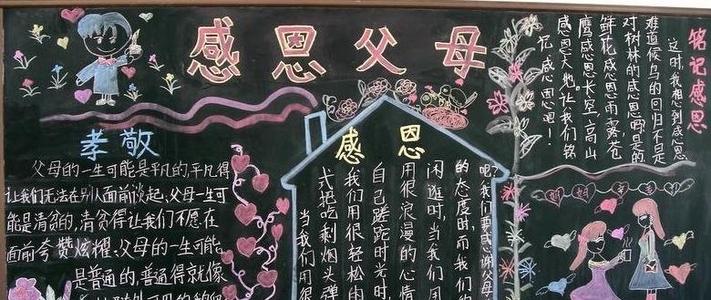 感恩父母
孝敬
父母的一生可能是平凡的平凡得
让我们无法在别人面前谈起、父母一生可
能是清贫的,清贫得让我们不愿在
面前夸赞炫耀、父母的一生可能
是普通的,普通得就像
感恩
我们要感谢父母
的态度时,而我们的
闲逛时,当我们用
用很浪漫的心情
自己蹉跎时光时,
我们用很轻松闲
式把吃剩烟头弹
当我们用很
铭记感恩
这时我想到感恩
难道候鸟的回归不是
对树林的感恩是的
鲜花感恩雨露,苍
鹰感恩长空,高山
感恩大地。让我们铭
记感恩吧!